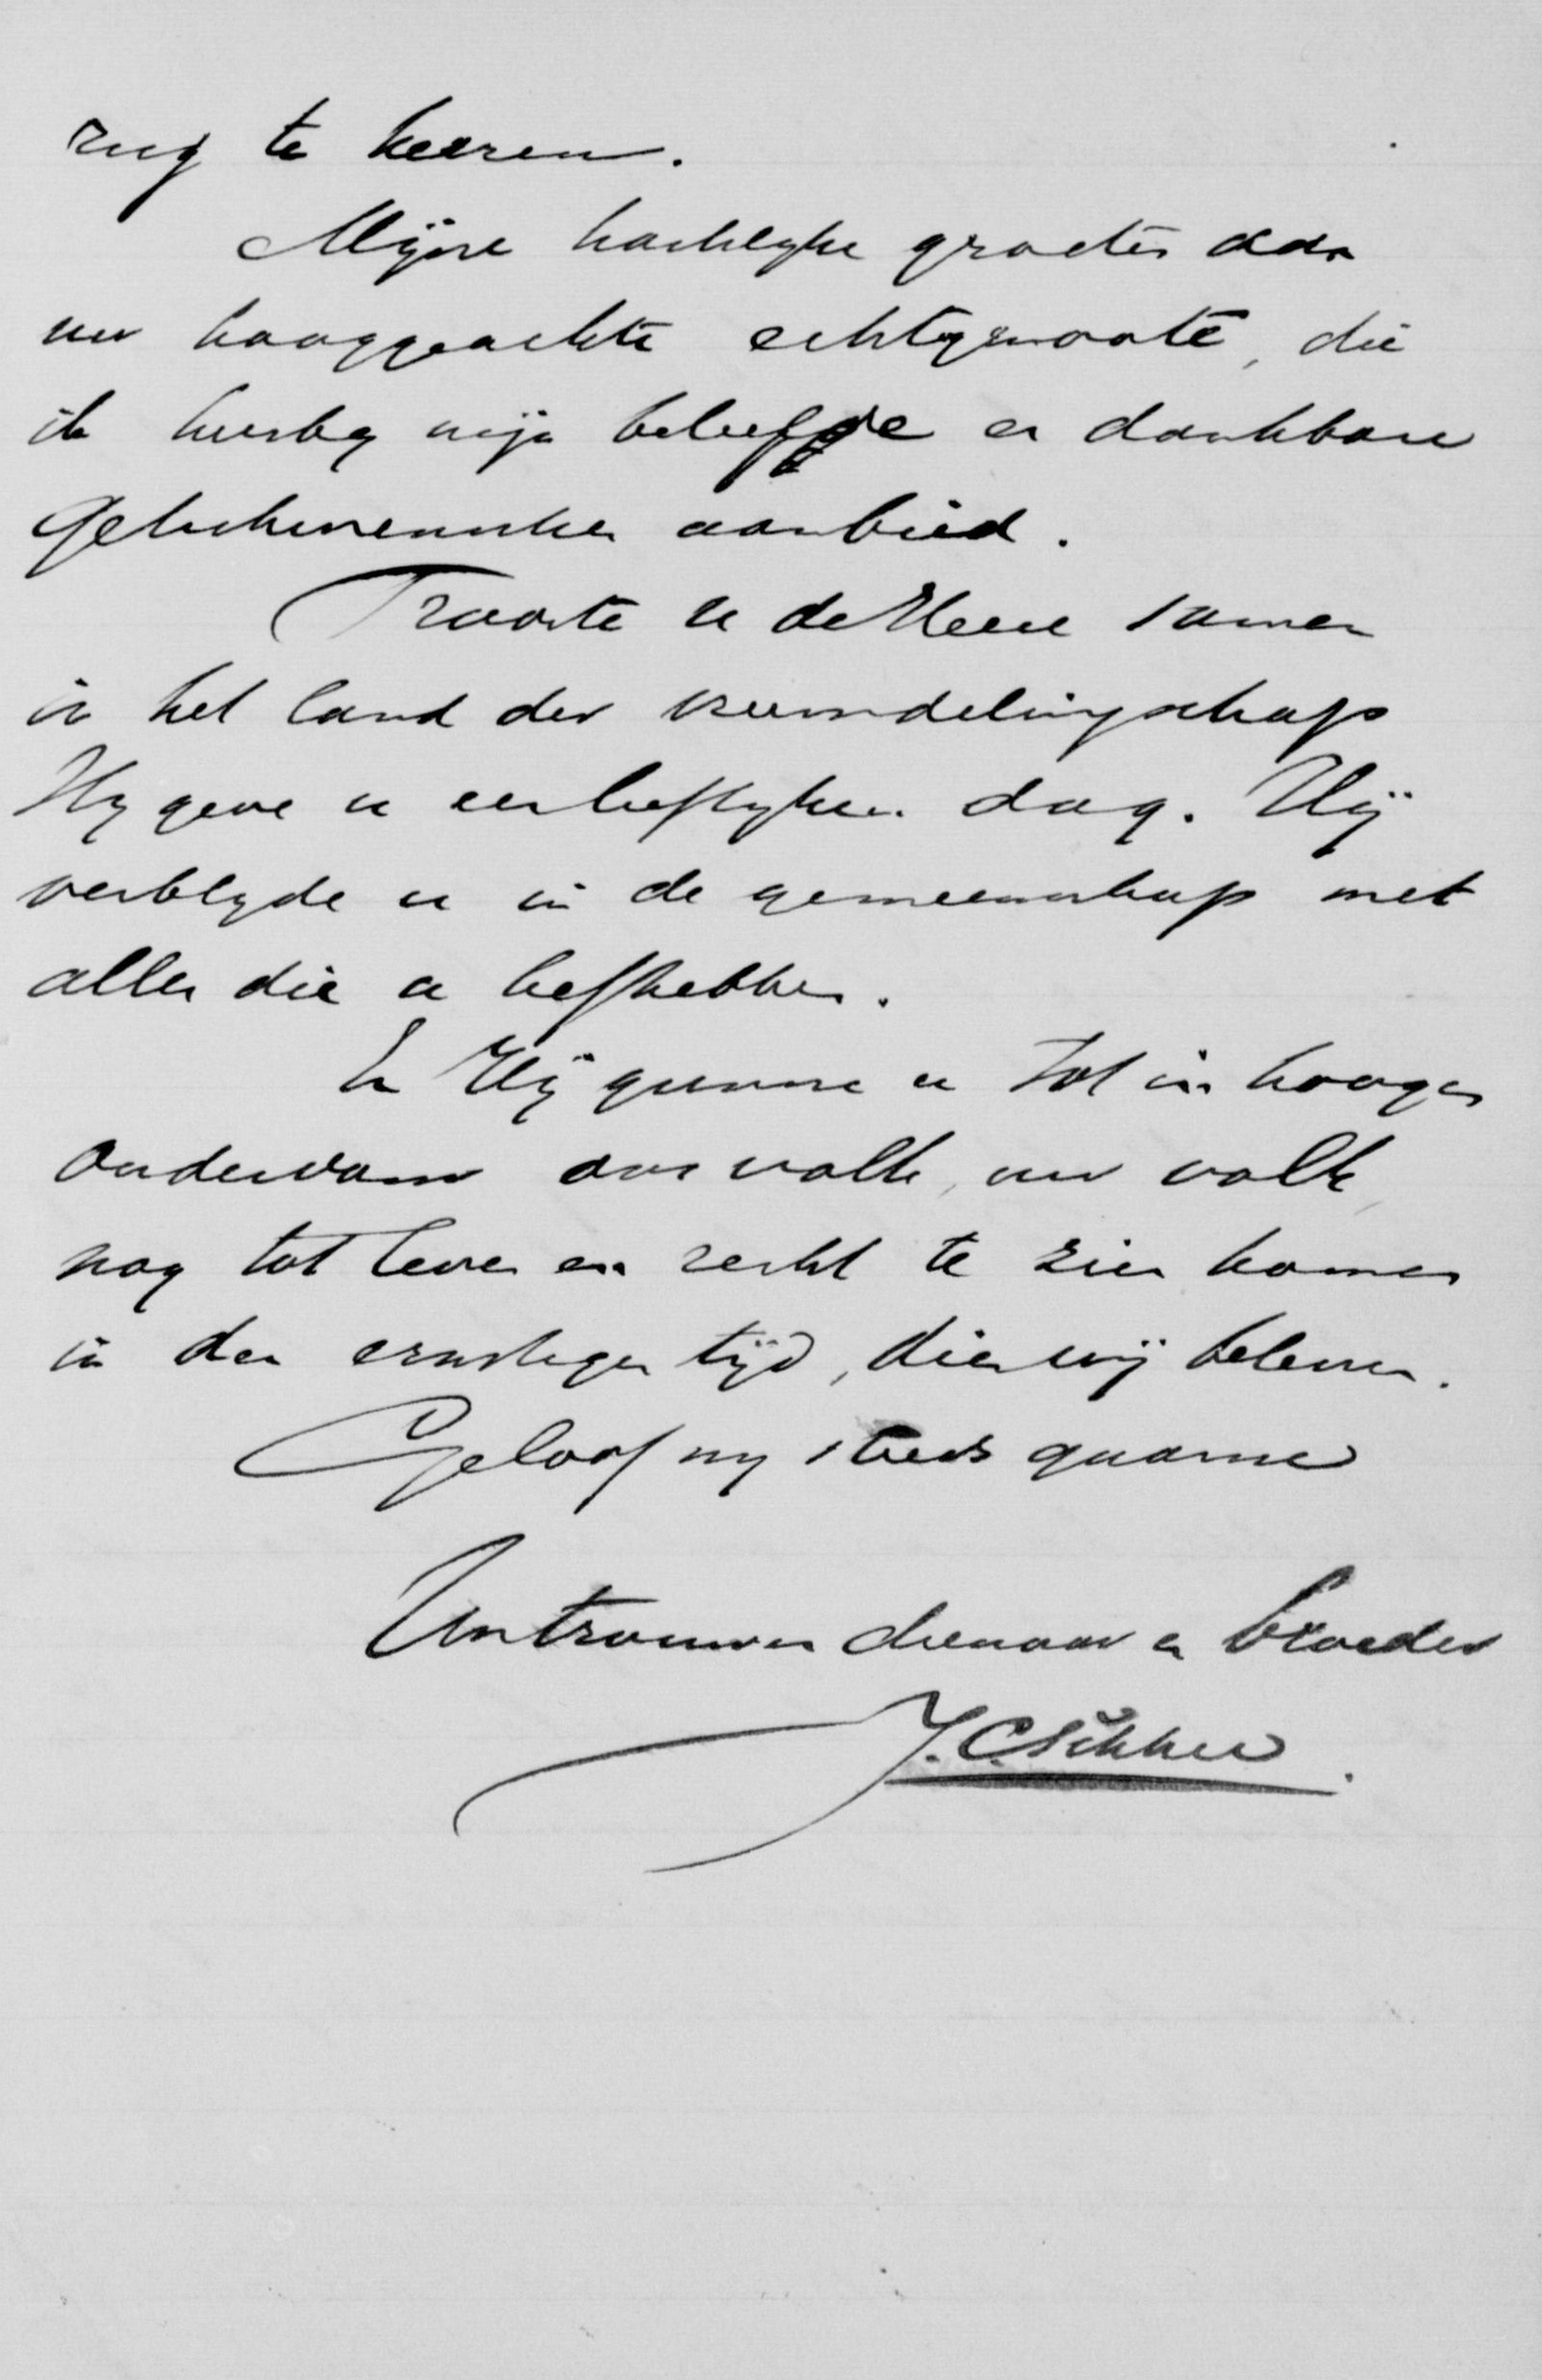 rug te keeren.
Mijne hartelyke groeten aan
uw hooggeachte echtgenoote, die
ik hierby mijn beleefde en dankbare
gelukwenschen aanbied.
Trooste u de Heere samen
in het land der vreemdelingschap
Hy geve u een lieflyken dag. Hij
verblyde u in de gemeenschap met
allen die u liefhebben.
En Hij gunne u tot in hoogen
ouderdom ons volk, uw volk,
nog tot leven en recht te zien komen
in den ernstigen tijd, dien wij beleven.
Geloof my steeds gaarne
Uw trouwen dienaar en broeder
J. C. Sikkel.